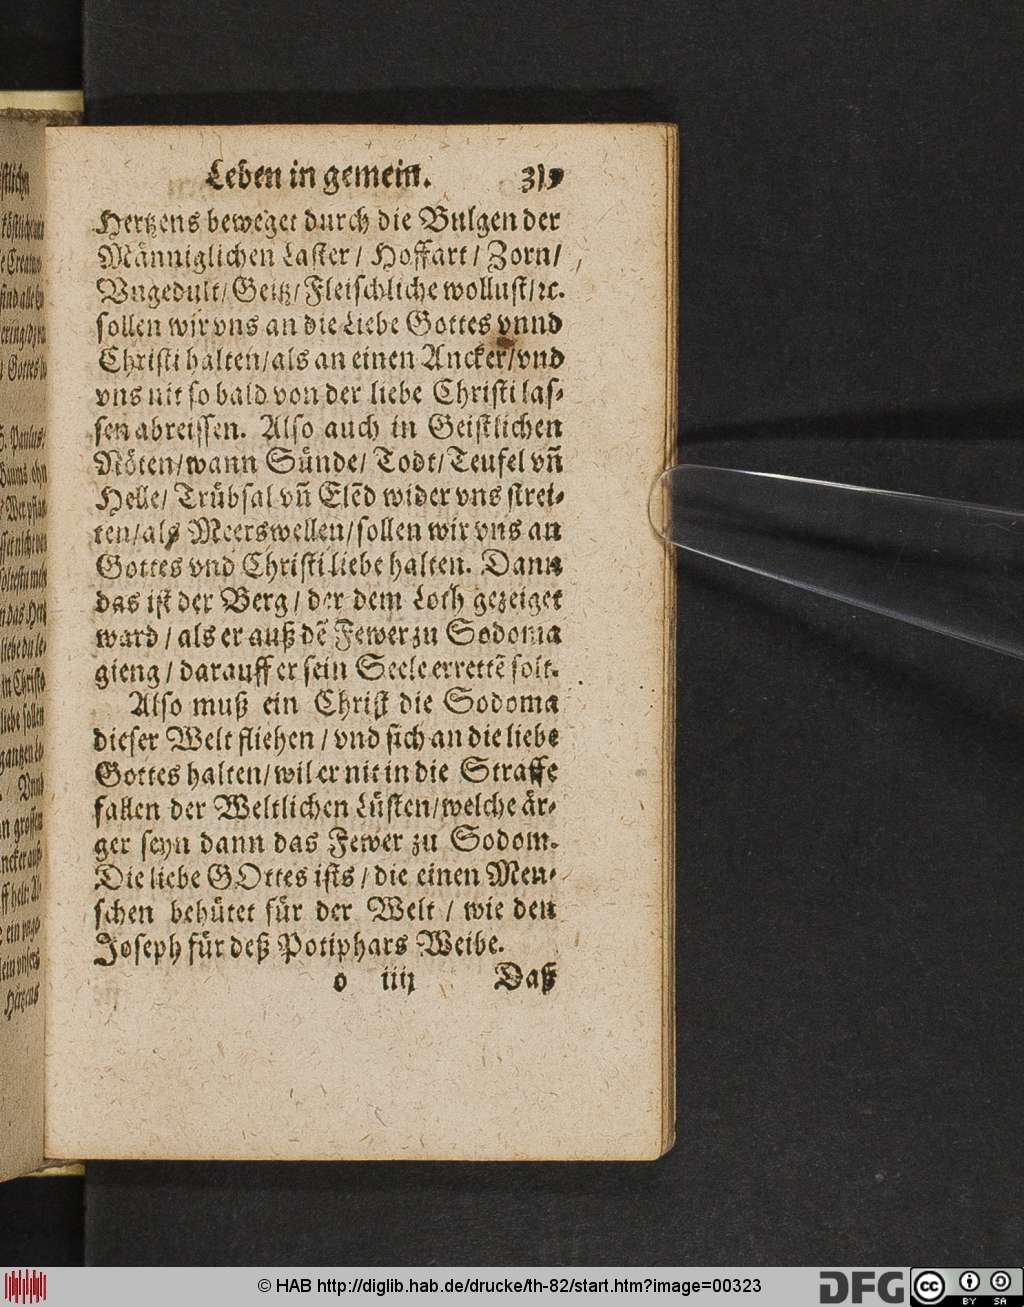 Leben in gemein.
Hertzens beweget durch die Bulgen der
Männiglichen Laster / Hoffart / Zorn /
Vngedult / Geitz / Fleischliche wollust / ꝛc.
sollen wir vns an die Liebe Gottes vnnd
Christi halten / als an einen Ancker / vnd
vns nit so bald von der liebe Christi las-
sen abreissen. Also auch in Geistlichen
Nöten / wann Sünde / Todt / Teufel vñ
Helle / Trübsal vñ Elēd wider vns strei-
ten / als Meerswellen / sollen wir vns an
Gottes vnd Christi liebe halten. Dann
das ist der Berg / der dem Loth gezeiget
ward / als er auß dē Fewer zu Sodoma
gieng / darauff er sein Seele errettē solt.
Also muß ein Christ die Sodoma
dieser Welt fliehen / vnd sich an die liebe
Gottes halten / wil er nit in die Straffe
fallen der Weltlichen Lüsten / welche är-
ger seyn dann das Fewer zu Sodom.
Die liebe GOttes ists / die einen Men-
schen behütet für der Welt / wie den
Joseph für deß Potiphars Weibe.
o iiij Daß
© HAB http://diglib.hab.de/drucke/th-82/start.htm?image=00323
DFG
cc BY SA